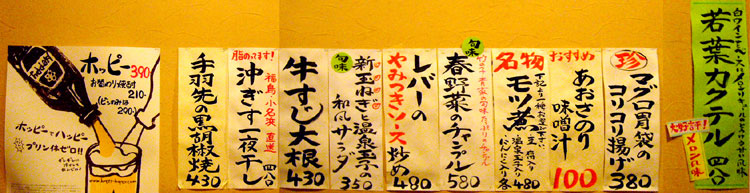 ホッピー 390
お替わり焼酎 210-
ホッピーでハッピー
プリン体ゼロ!!
手羽先の黒胡椒焼 430
脂のってます!
福島・小名浜直送
沖ぎす一夜干し 四八〇
牛すじ大根 430
旬味
新玉ねぎと温泉玉子の
和風サラダ 350
レバーの
やみつきソース炒め 480
旬味
春野菜のチャンプルー 580
名物
モツ煮 各480
おすすめ
あおさのり
味噌汁 100
珍
マグロ胃袋の
コリコリ揚げ 380
若葉カクテル 四八〇
大好評!
メロン風味